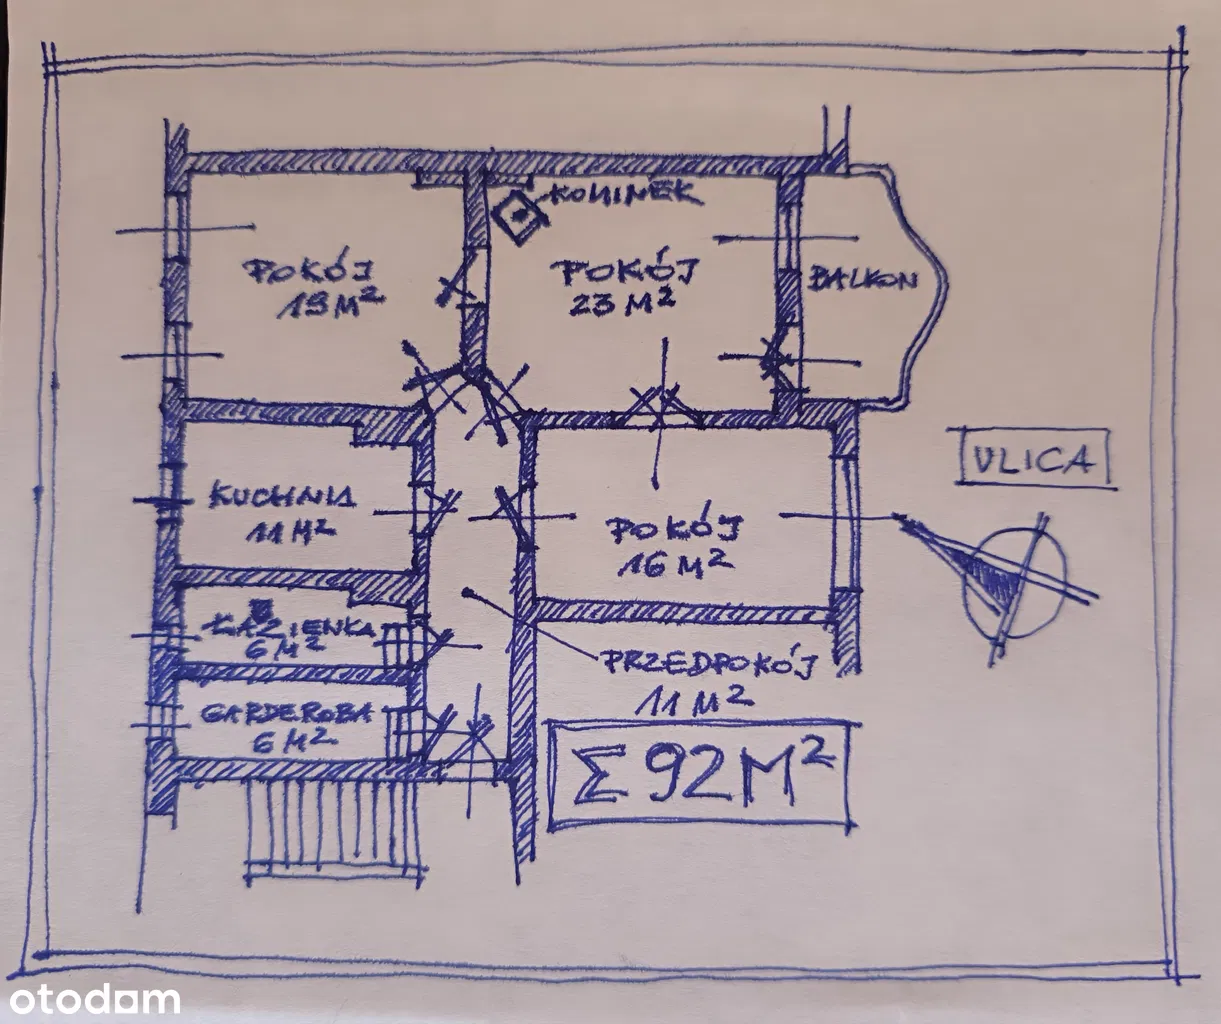 KOMINEK
POKÓJ
19 M²
POKÓJ
23 M²
BALKON
ULICA
KUCHNIA
11 M²
POKÓJ
16 M²
ŁAZIENKA
6 M²
PRZEDPOKÓJ
11 M²
GARDEROBA
6 M²
Σ 92 M²
otodom